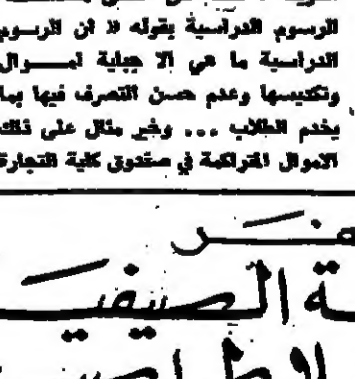 الرسوم الدراسية بقوله « ان الرسوم
الدراسية ما هي الا جباية لمسوال
وتكديسها وعدم حسن التصرف فيها بما
يخدم الطلاب ... وخير مثال على ذلك
الاموال المتراكمة في صندوق كلية التجارة
ـة الصيفيـ